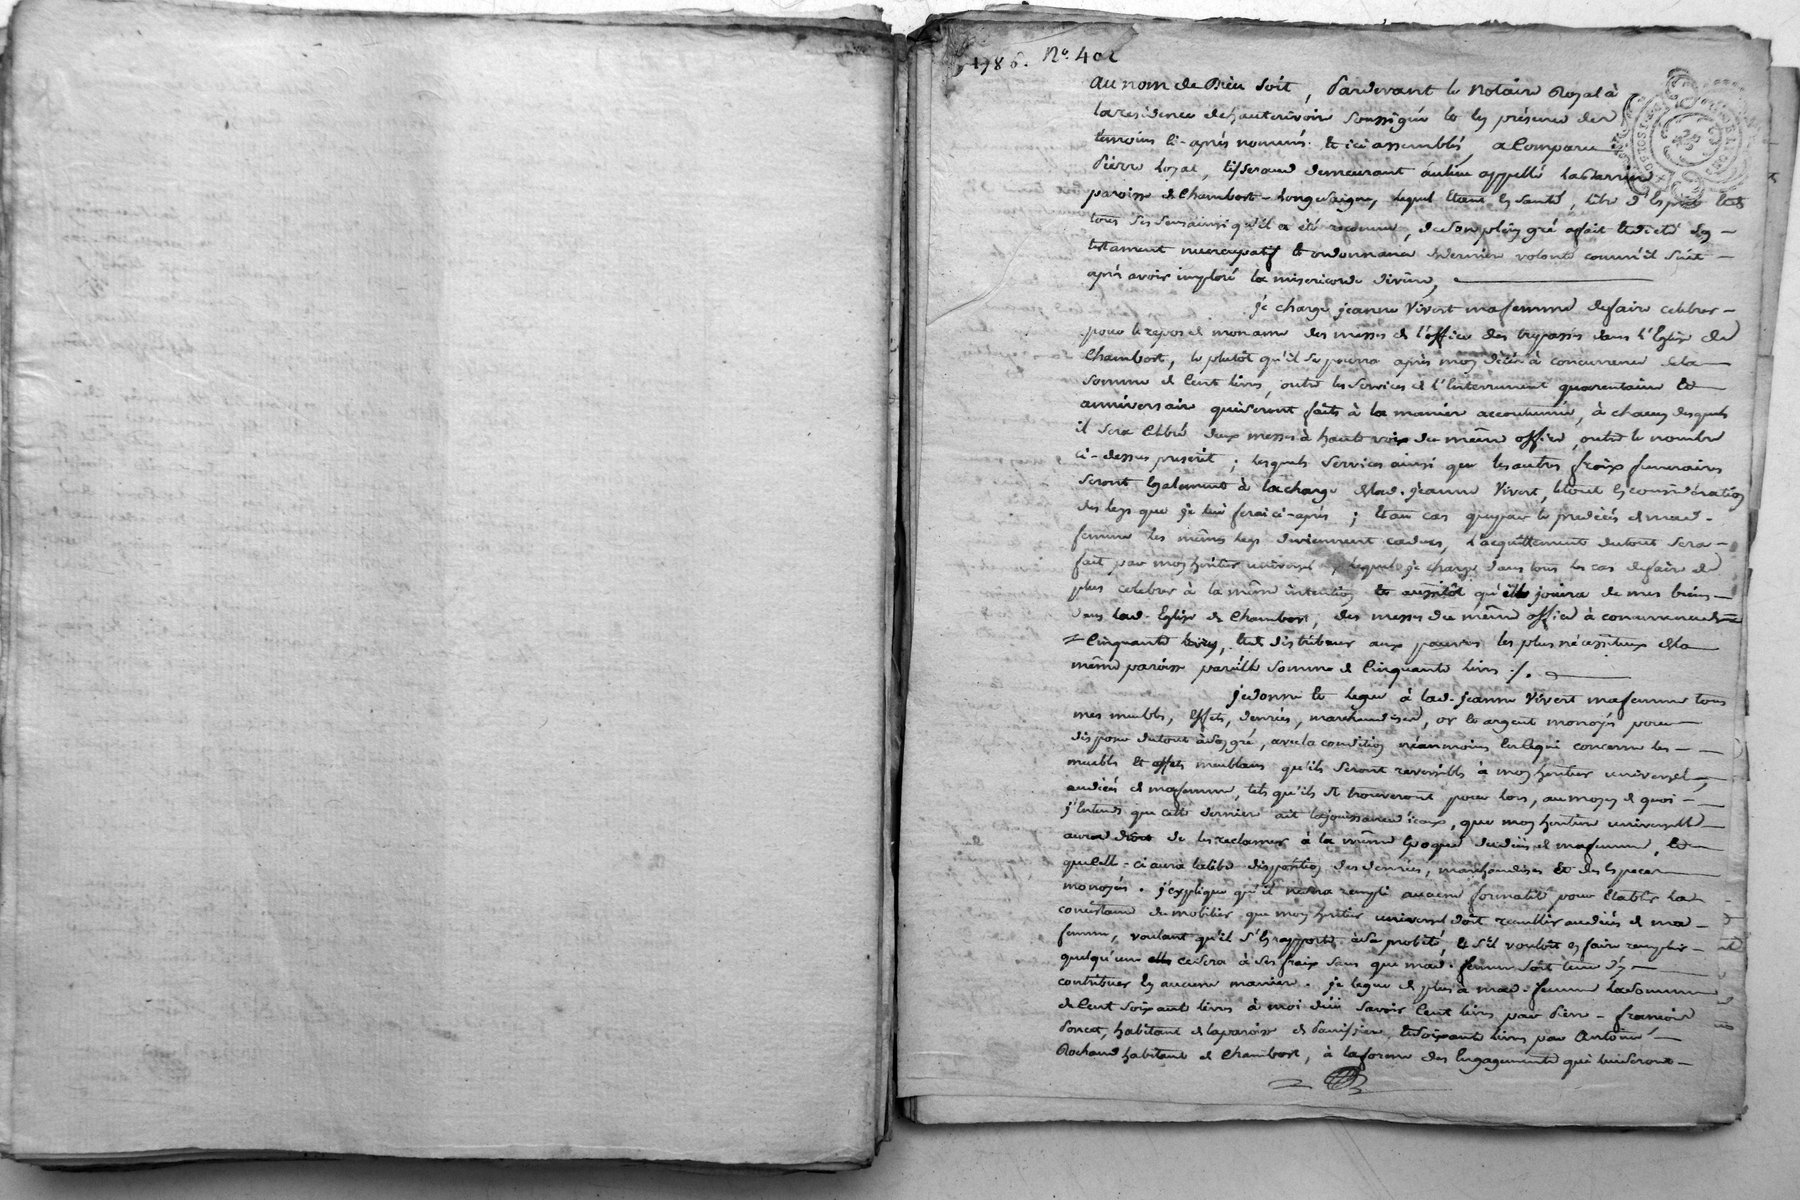 1786. N.o 402
au nom de Dieu soit, Pardevant le Notaire Royal à
la résidence de hauterivoire soussigné et en présence des
temoins ci-après nommés et ici assemblés, a Comparu
Pierre loyat, tisserand demeurant au lieu appellé
paroisse de Chambost-Longesaigne, lequel Etant En santé, libre d'Esprit
tous ses sens ainsi qu'il a été reconnu, de son plein gré a fait et dicté son
testament nuncupatif et ordonnance de dernière volonté comm'il suit
après avoir imploré la misericorde divine,
je charge jeanne Vivert ma femme de faire celebrer
pour le repos de mon ame des messes de l'office des trepassés dans l'Eglise de
Chambost, le plutôt qu'il se pourra après mon décès à concurrence de la
somme de Cent livres, outre les services de l'Enterrement quarentaine et
anniversaire qui seront faits à la manière accoutumée, à chacun desquels
il sera Célébré deux messes à haute voix du même office, outre le nombre
ci-dessus prescrit; lesquels services ainsi que les autres fraix funeraires
seront Egalement à la charge de lad. jeanne Vivert, le tout En considération
des legs que je lui ferai ci-après; Et au cas que par le predécès de mad.
femme les mêmes legs deviennent caducs, l'acquittement du tout sera
fait par mon héritier universel, lequel je charge dans tous les cas de faire de
plus celebrer à la même intention et aussitôt qu'il jouira de mes biens
dans lad. Eglise de Chambost, des messes du même office à concurrence de
Cinquante livres, Et de distribuer aux pauvres les plus nécessiteux de la
même paroisse pareille somme de Cinquante livres ./.
je donne et legue à lad. jeanne Vivert ma femme tous
mes meubles, Effets, denrées, marchandises, or et argent monoyés pour
disposer du tout à son gré, avec la condition néanmoins En ce qui concerne les
meubles et effets meublans qu'ils seront reversibles à mon héritier universel,
au décès de ma femme, tels qu'ils se trouveront pour lors, au moyen de quoi
j'Entends que cette dernière ait la jouissance d'iceux, que mon héritier universel
aura droit de les reclamer à la même Epoque du décès de ma femme, et
quelle-ci aura la libre disposition des denrées, marchandises et des Especes
monoyés. j'explique qu'il ne sera rempli aucune formalité pour Etablir la
consistance du mobilier que mon héritier universel doit recueillir au décès de ma
femme, voulant qu'il s'En rapporte à sa probité, et s'il vouloit En faire remplir
quelqu'une ce sera à ses fraix sans que mad. femme soit tenue d'y
contribuer En aucune manière. je legue de plus à mad. femme la somme
de Cent soixante livres à moi dûe savoir Cent livres par Pierre-françois
Poncet, habitant de la paroisse de Panissière, et soixante livres par Antoine
Rochand habitant de Chambost, à la forme des Engagements qui lui seront